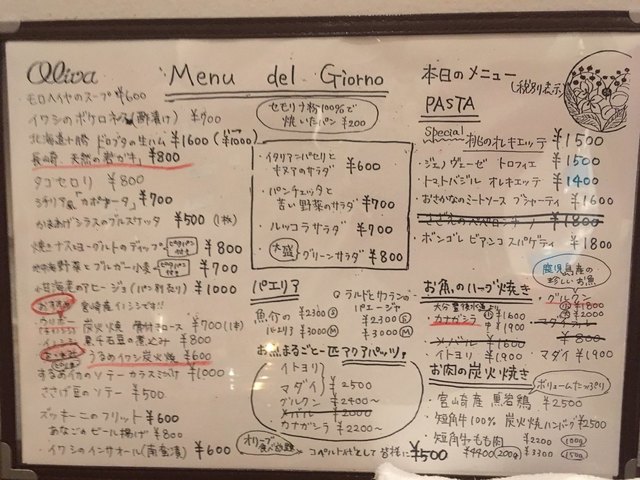 Oliva
Menu del Giorno
本日のメニュー
(税別表示)
モロヘイヤのスープ ¥600
イワシのポケロネス(酢漬け) ¥700
北海道十勝 ドロブタの生ハム ¥1600 (½ ¥1000)
長崎、天然の岩ガキ ¥800
タコセロリ ¥800
シチリア風「カポナータ」 ¥700
かまあげシラスのブルスケッタ ¥500 (1枚)
焼きナスとヨーグルトのディップ ピタパン付き ¥800
地中海野菜とブルガー小麦 ピタパン付き ¥700
小豆海老のアヒージョ(パン別売り) ¥1000
おすすめ 宮崎産イノシシです!!
ウリボー 炭火焼 骨付きロース ¥700(1本)
イノシシ 黒千石豆の煮込み ¥800
うるめイワシ炭火焼 ¥600
するめイカのソテー カラスミつけ ¥1000
ささげ豆のソテー ¥500
ズッキーニのフリット ¥600
あなごのビール揚げ ¥800
・イワシのインサオール(南蛮漬) ¥600
セモリナ粉100%で
焼いたパン ¥200
・イタリアンパセリと
キヌアのサラダ ¥600
・パンチェッタと
苦い野菜のサラダ ¥700
・ルッコラサラダ ¥700
大盛 グリーンサラダ ¥800
パエリア
魚介の ¥2300 S
パエリヤ ¥3000 M
ラルドとリコランの
パエージャ
¥2300 S
¥3000 M
お魚まるごと一匹 アクアパッツァ
イトヨリ
マダイ ¥2500
グルクン ¥2400〜
メバル ¥2000
カナガシラ ¥2200〜
オリーブ食べ放題
コペルト代として皆様に ¥500
PASTA
Special 桃のオレキエッテ ¥1500
・ジェノヴェーゼ トロフィエ ¥1500
・トマトバジル オレキエッテ ¥1400
・おさかなのミートソース ブシャーティ ¥1600
¥1800
・ボンゴレ ビアンコ スパゲティ ¥1800
鹿児島産の
珍しいお魚
お魚のハーブ焼き
大分豊後水道より
・カナガシラ ¥1600 ¥1900
・グルクン ¥1800 ¥2000
・メバル ¥1600
・マダイラブル ¥800
・イトヨリ ¥1900
・マダイ ¥1900
お肉の炭火焼き
ボリュームたっぷり
・宮崎産 黒岩鶏 ¥2500
・短角牛100% 炭火焼ハンバーグ ¥2500
・短角牛もも肉 ¥2200 100g
¥4400 200g ¥3300 150g